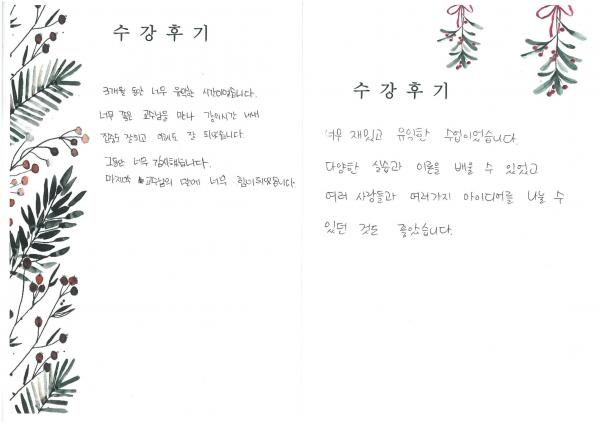 수강후기
3개월 동안 너무 유익한 시간이었습니다.
너무 좋은 교수님을 만나 강의시간 내내
집중도 잘되고 이해도 잘 되었습니다.
그동안 너무 감사했습니다.
마지막 교수님의 말에 너무 힘이되었습니다.
수강후기
너무 재밌고 유익한 수업이었습니다.
다양한 실습과 이론을 배울 수 있었고
여러 사람들과 여러가지 아이디어를 나눌 수
있던 것도 좋았습니다.